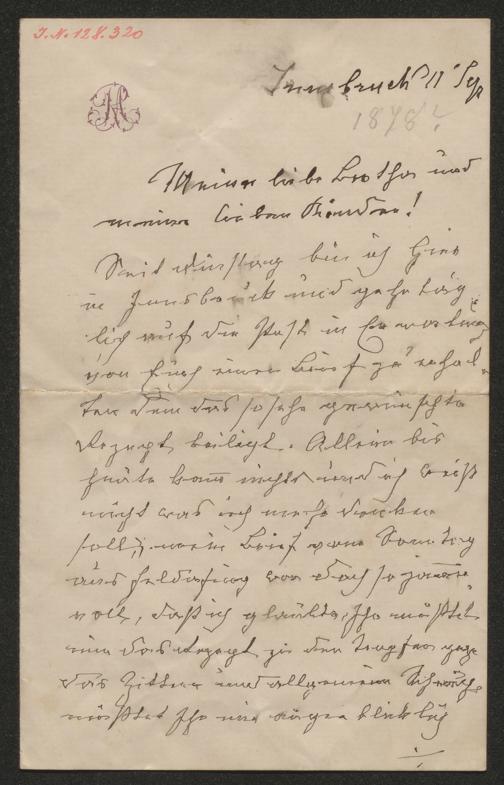 J.N. 128.320
Innsbruck 11 Sep
1878?
Meine liebe Bertha und
meine lieben Kinder!
Seit Dienstag bin ich hier
in Innsbruck und gehe täg
lich auf die Post in Erwartung
von Euch einen Brief zu erhal
ten dem das so sehr gewünschte
Rezept beiliegt. Allein bis
heute kam nichts und ich weiß
nicht was ich mehr denken
soll; mein Brief vom Sonntag
aus Feldafing war doch so jammer
voll, daß ich glaubte, Ihr müßtet
mir das Rezept zu den Tropfen gegen
das Zittern und allgemeine Schwäche
müßtet Ihr mir augenblicklich